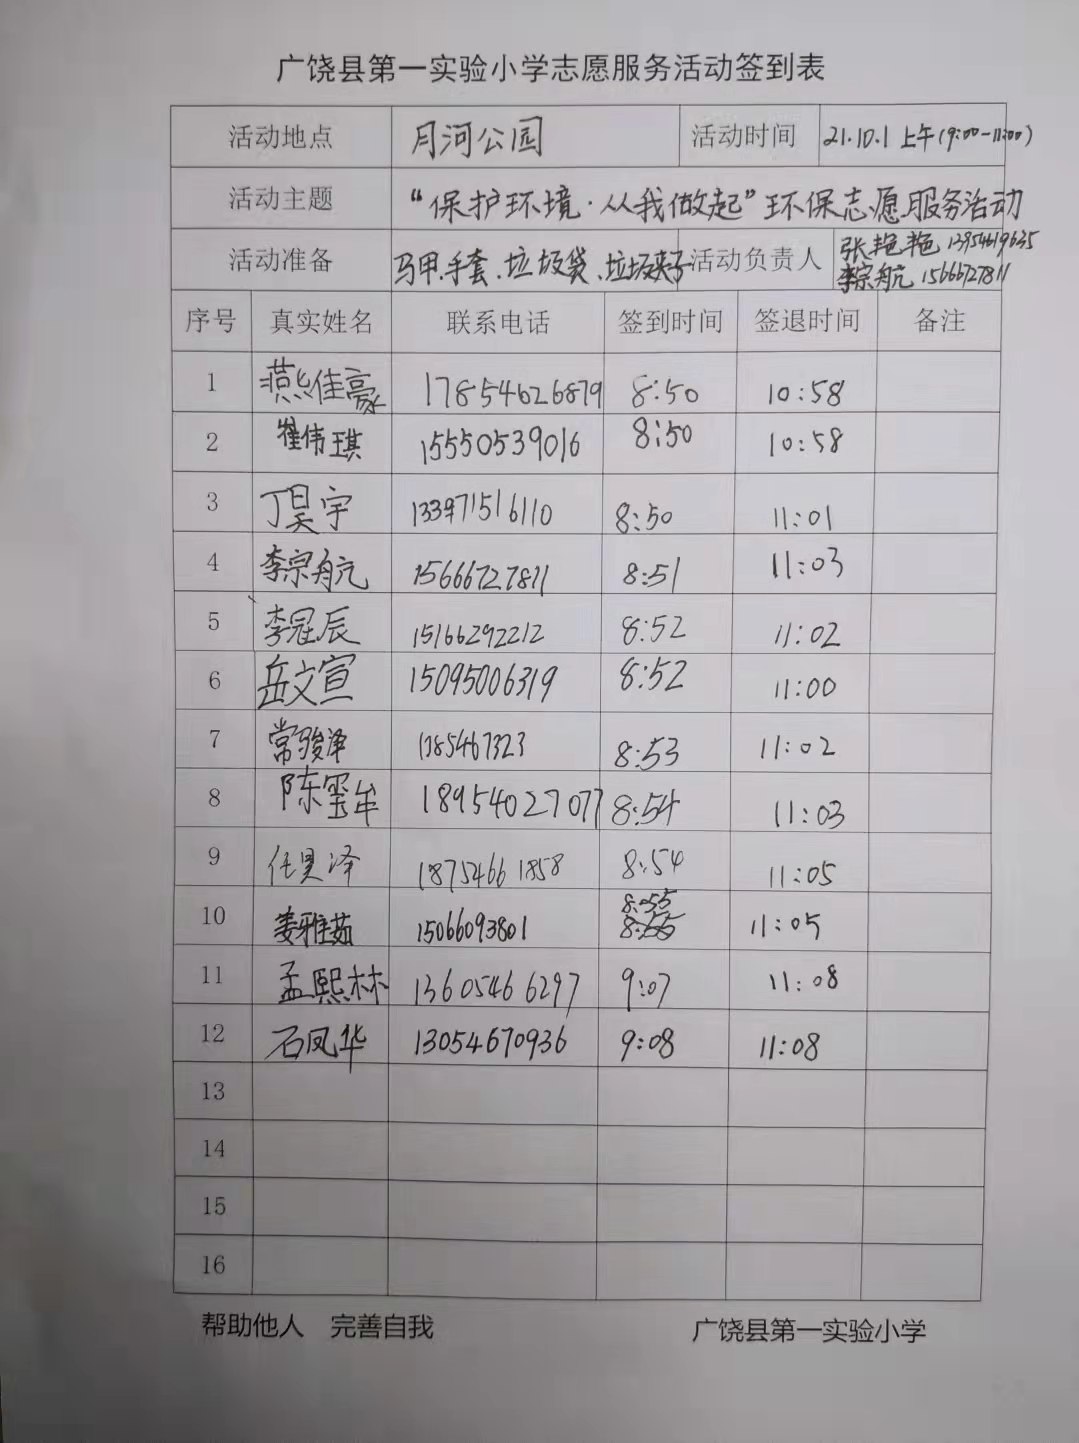 广饶县第一实验小学志愿服务活动签到表
活动地点 月河公园 活动时间 21.10.1 上午(9:00-11:00)
活动主题 “保护环境·从我做起”环保志愿服务活动
活动准备 马甲、手套、垃圾袋、垃圾夹子 活动负责人 张艳艳 13954619635
李宗航 15666727811
序号 真实姓名 联系电话 签到时间 签退时间 备注
1 燕佳豪 17854626879 8:50 10:58
2 崔伟琪 15550539016 8:50 10:58
3 丁昊宇 133971516110 8:50 11:01
4 李宗航 15666727811 8:51 11:03
5 李冠辰 15166292212 8:52 11:02
6 岳文宣 15095006319 8:52 11:00
7 常骏泽 1785467323 8:53 11:02
8 陈玺牟 18954027077 8:54 11:03
9 任昊泽 18754661858 8:54 11:05
10 姜雅茹 15066093801 8:55 11:05
11 孟熙林 13605466297 9:07 11:08
12 石凤华 13054670936 9:08 11:08
13
14
15
16
帮助他人 完善自我 广饶县第一实验小学